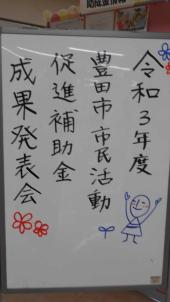 令和3年度
豊田市市民活動
促進補助金
成果発表会